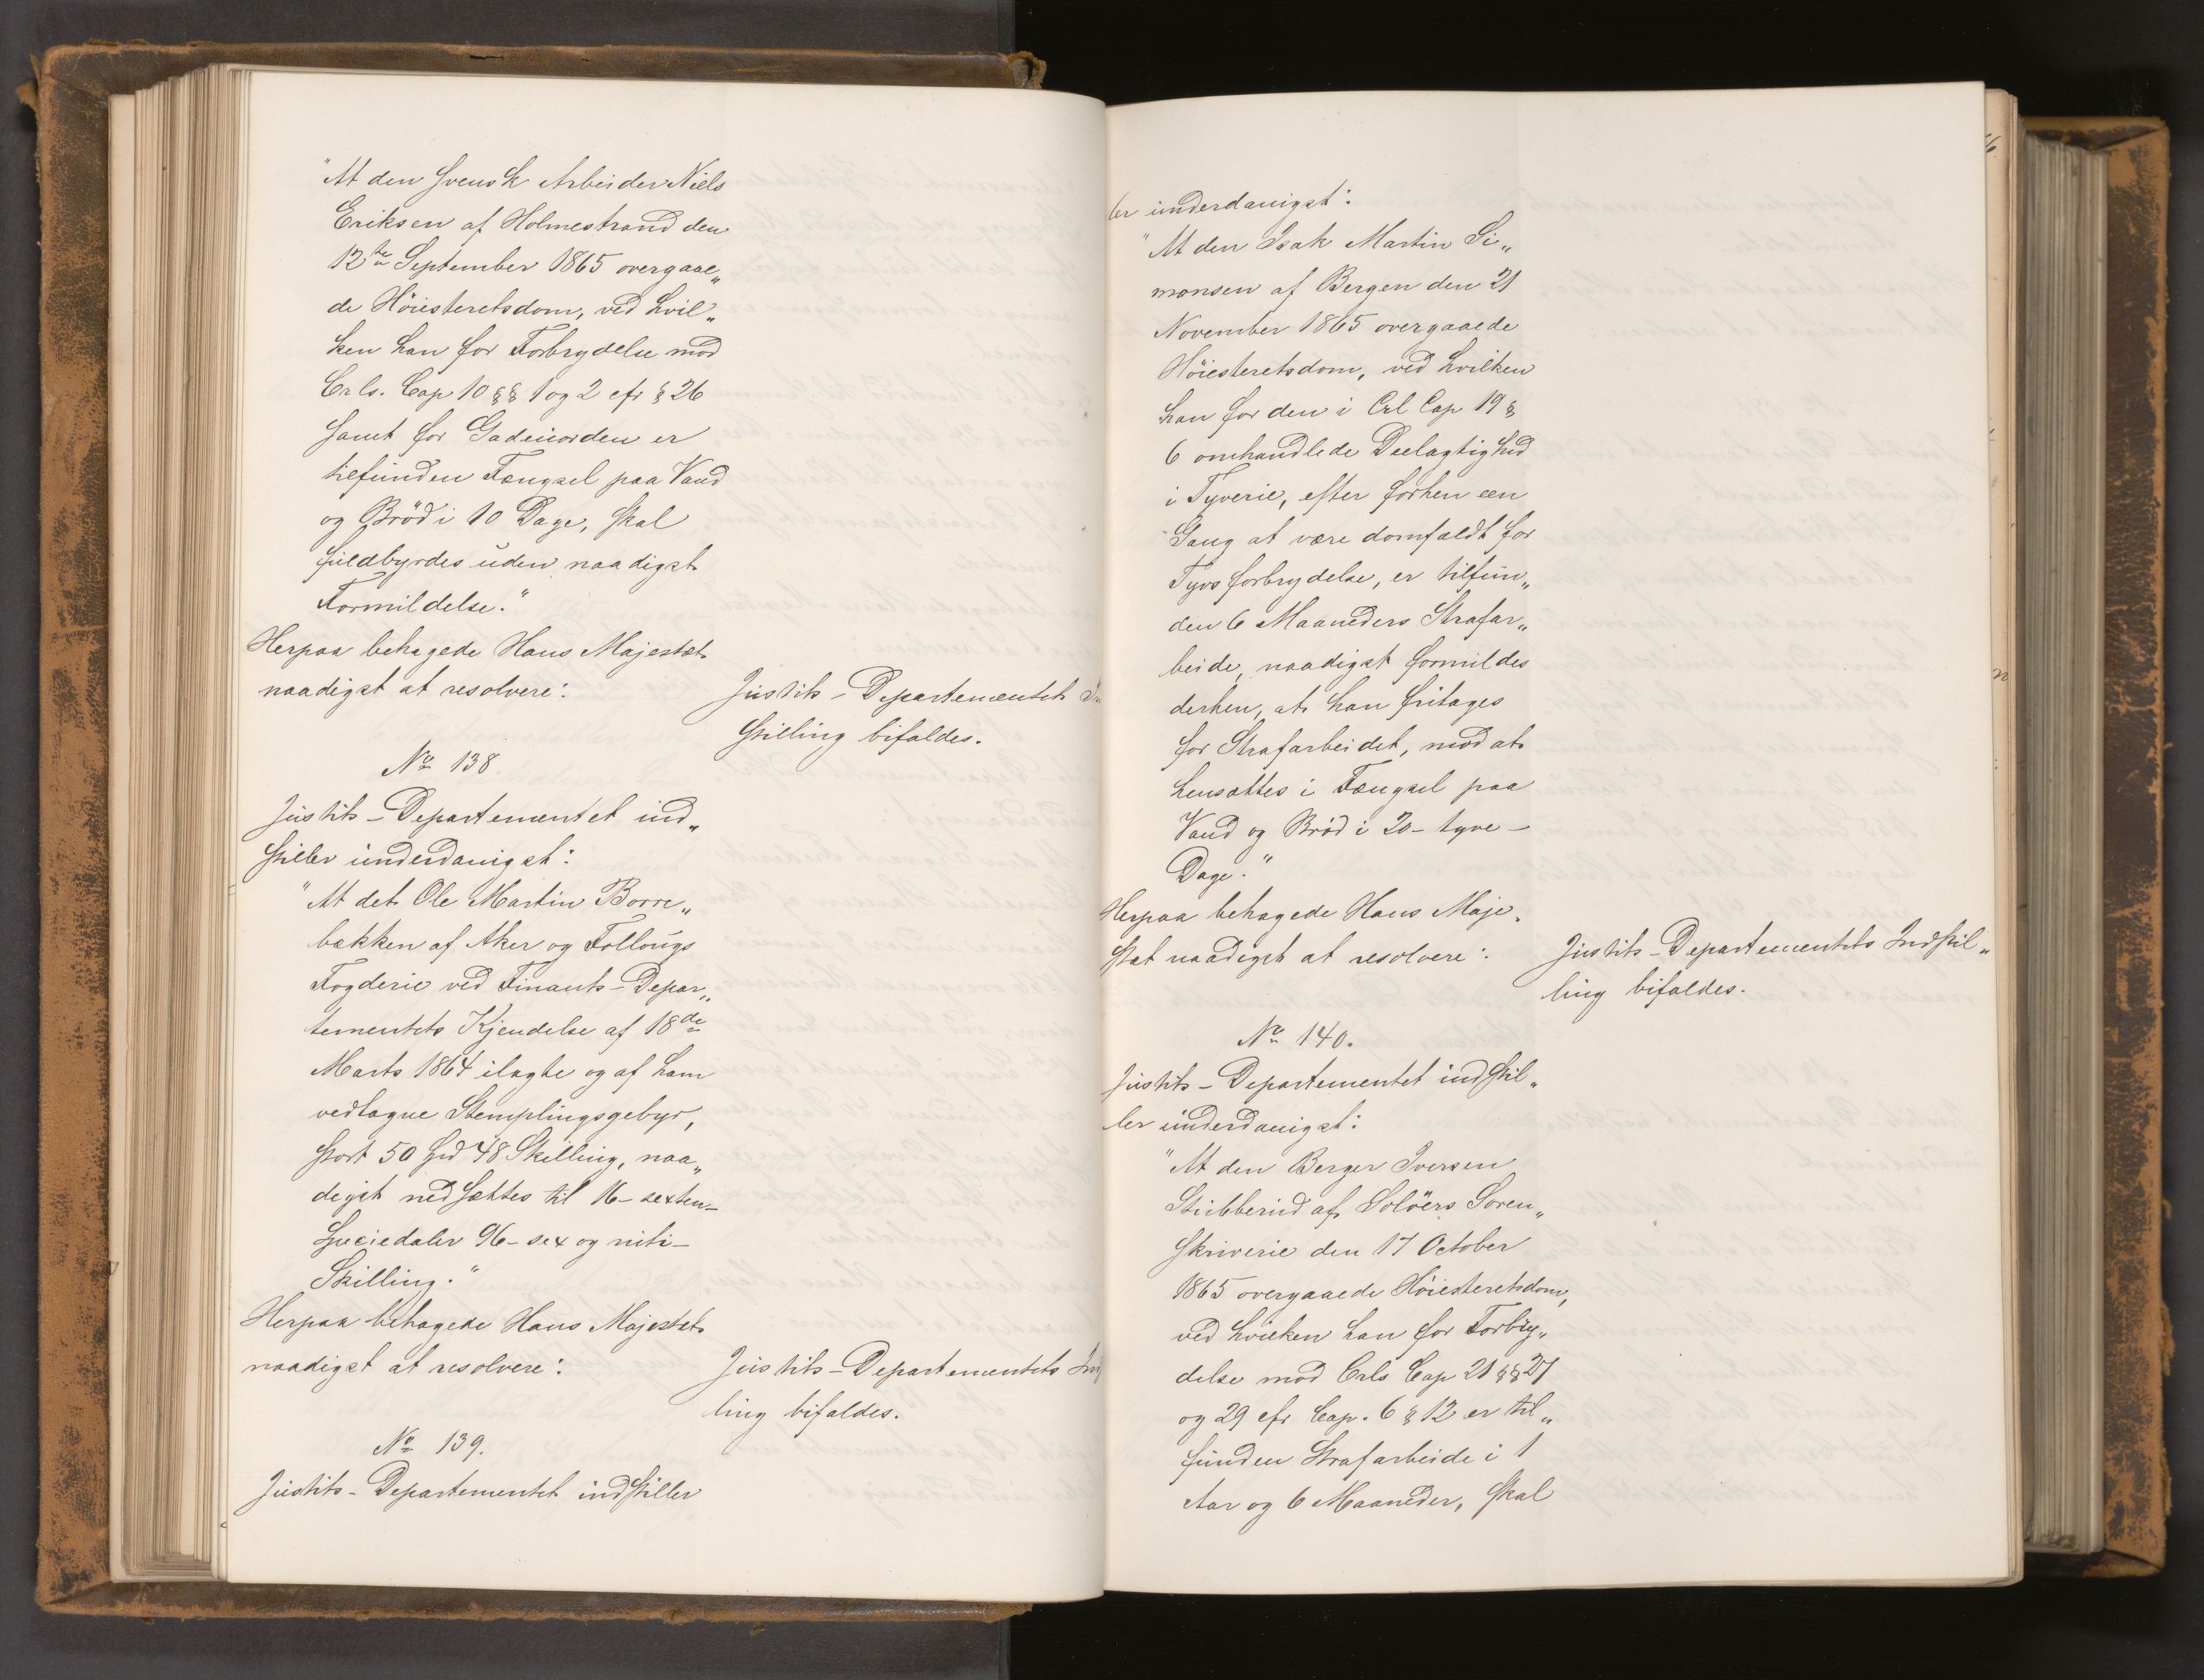 "At den svensk Arbeider Niels
Eriksen af Holmestrand den
12te September 1865 overgaae„
de Höiesteretsdom, ved hvil„
ken han for Forbrydelse mod
Crls. Cap 10 §§ 1 og 2 cfr § 26
samt for Gadeuorden er
tilfunden Fængsel paa Vand
og Bröd i 10 Dage, skal
fuldbyrdes uden naadigst
Formildelse."
Herpaa behagede Hans Majestæt
naadigst at resolvere:
Justits-Departementets In
stilling bifaldes.
No 138
Justits-Departementet ind„
stiller underdanigst:
"At det Ole Martin Borre„
bækken af Aker og Follougs
Fogderie ved Finants-Depar„
tementets Kjendelse af 18de
Marts 1864 ilagte og af ham
vedtagne Stemplingsgebyr,
stort 50 Spd 48 Skilling, naa„
digst nedsættes til 16 - sexten -
Speciedaler 96 - sex og niti -
Skilling."
Herpaa behagede Hans Majestæt
naadigst at resolvere:
Justits-Departementets Ind
ling bifaldes.
No 139.
Justits-Departementet indstiller
ler underdanigst:
"At den Isak Martin Si„
monsen af Bergen den 21
November 1865 overgaaede
Höiesteretsdom, ved hvilken
han for den i Crl Cap 19 §
6 omhandlede Deelagtighed
i Tyverie, efter forhen een
Gang at være domfældt for
Tyvsforbrydelse, er tilfun„
den 6 Maaneders Strafar„
beide, naadigst formildes
derhen, at han fritages
for Strafarbeidet, mod at
hensættes i Fængsel paa
Vand og Bröd i 20 - tyve -
Dage."
Herpaa behagede Hans Maje„
stæt naadigst at resolvere:
Justits-Departementets Indstil„
ling bifaldes.
No 140.
Justits-Departementet indstil„
ler underdanigst:
"At den Berger Iversen
Stubberud af Solöers Soren„
skriverie den 17 October
1865 overgaaede Höiesteretsdom,
ved hvilken han for Forbry„
delse mod Crls Cap 21 §§ 27
og 29 cfr Cap. 6 § 12 er til„
funden Strafarbeide i 1
Aar og 6 Maaneder, skal